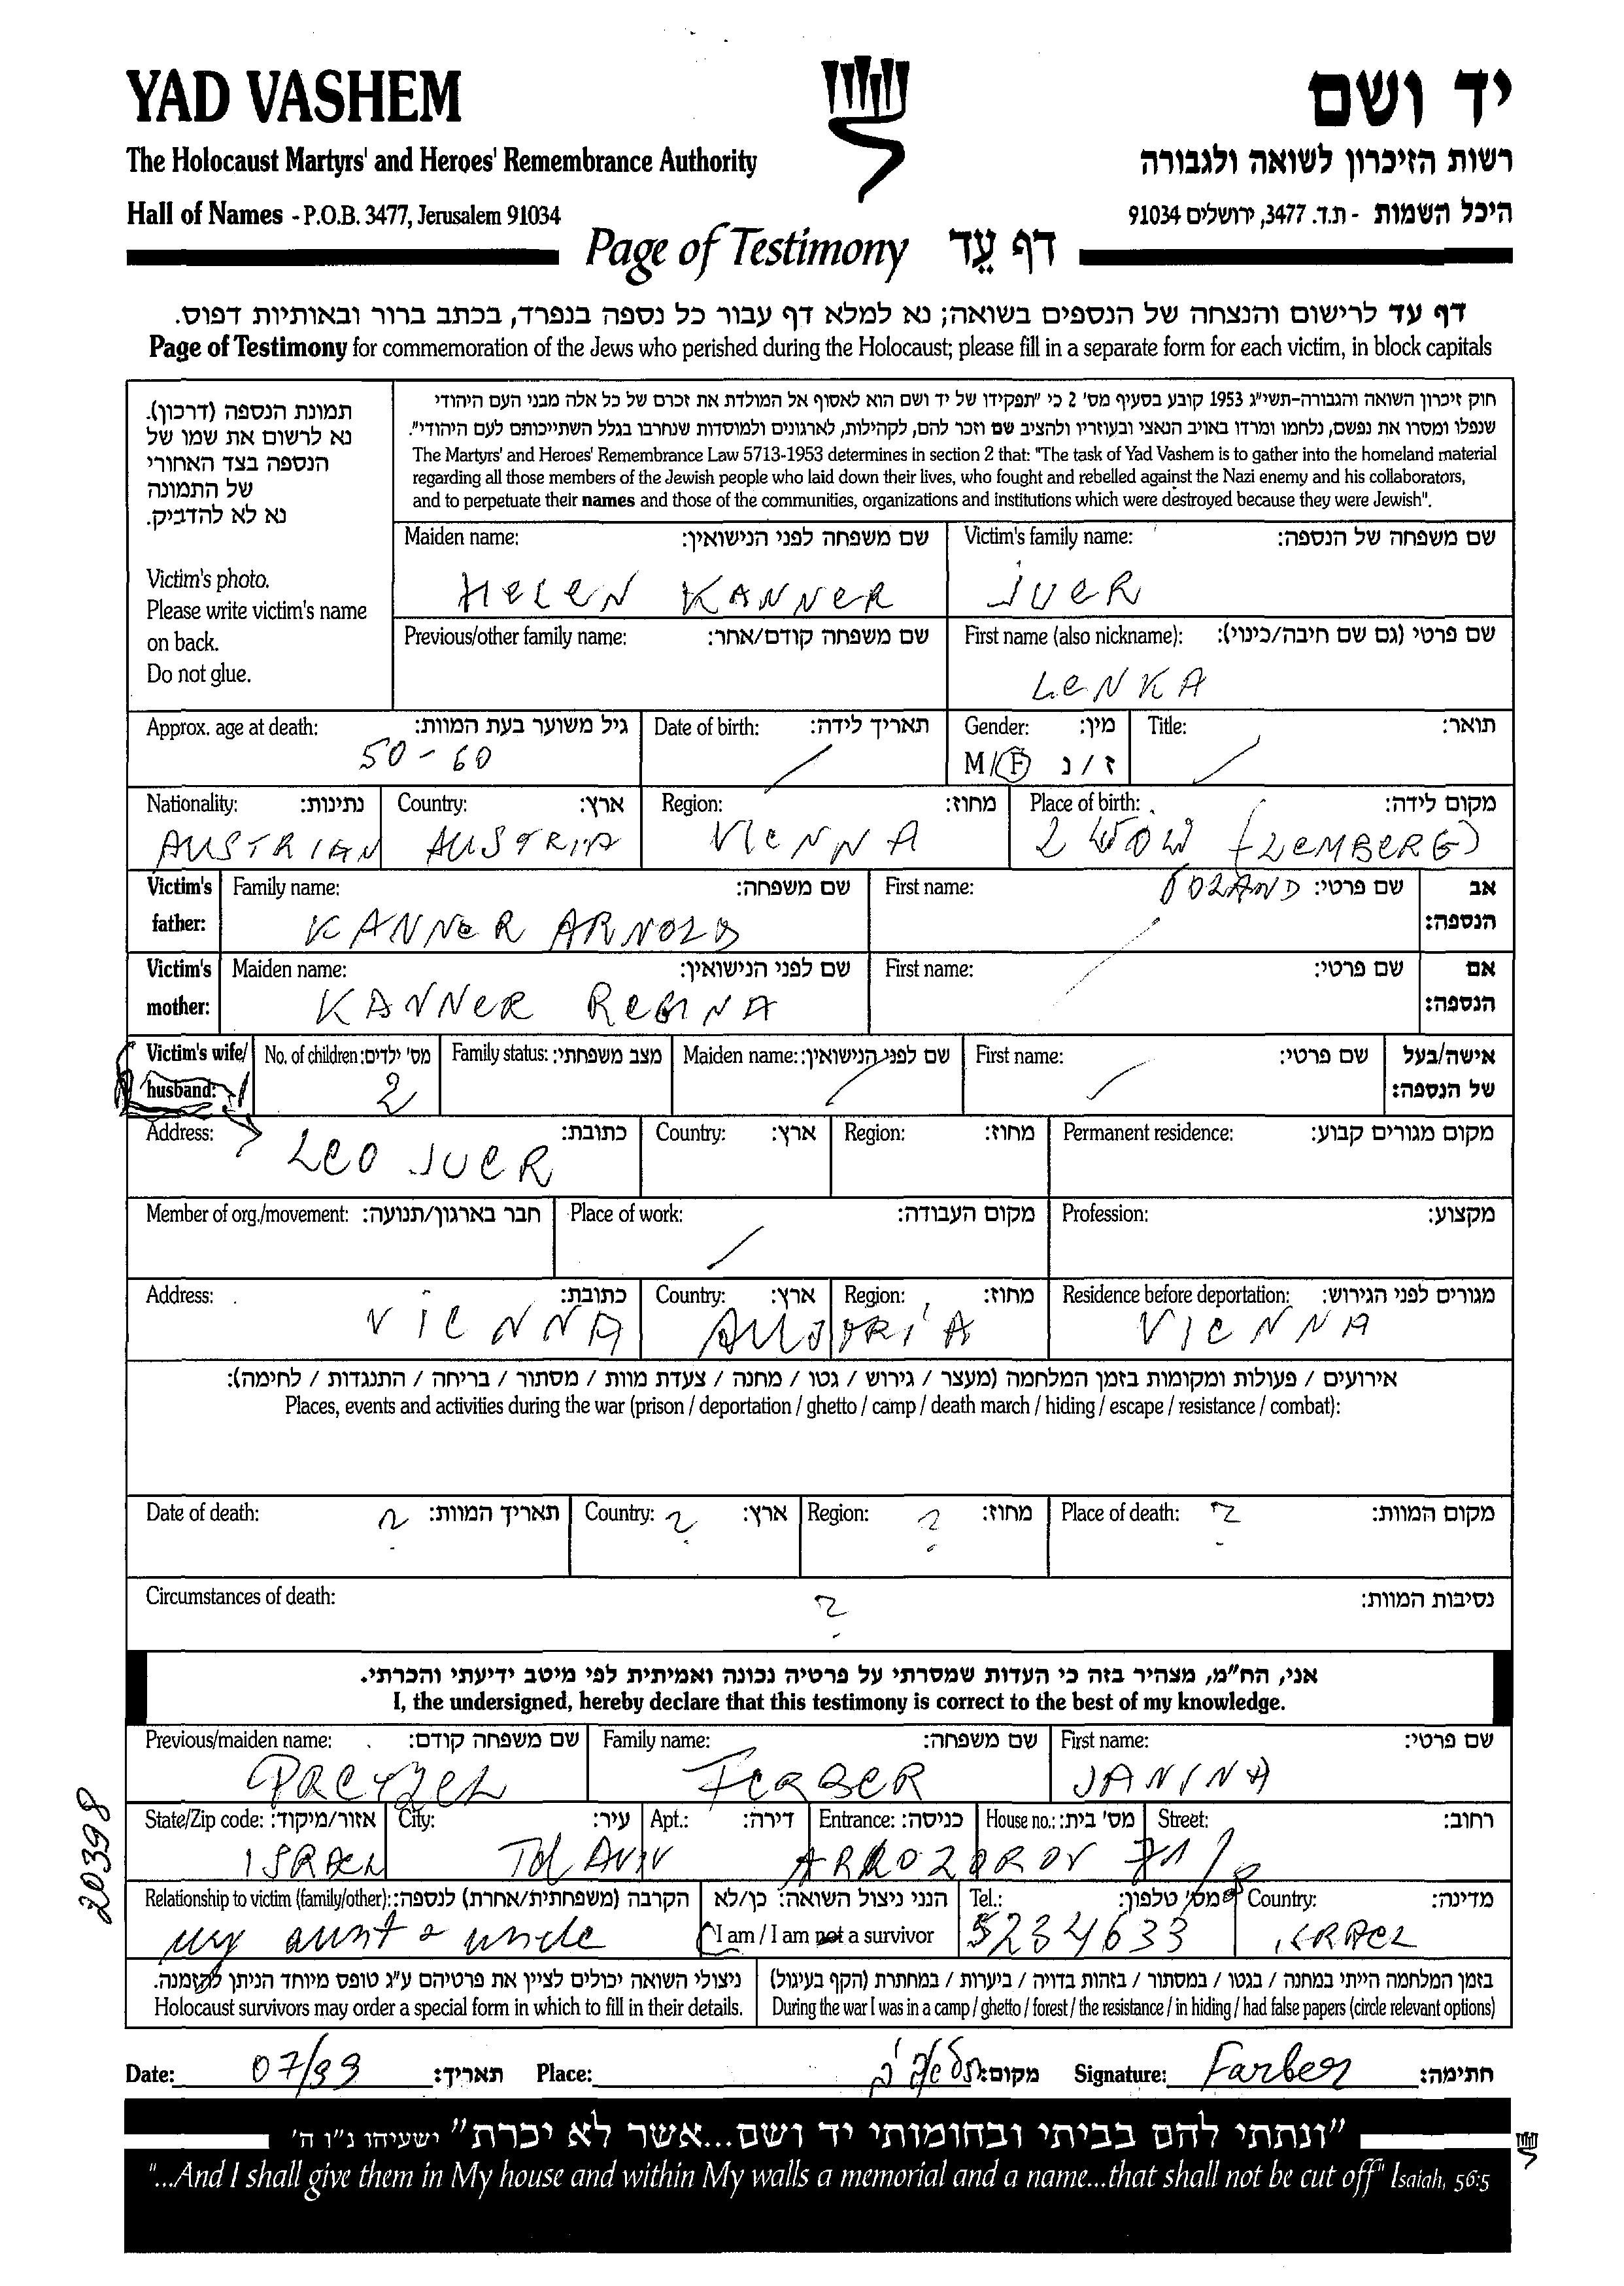 YAD VASHEM
יד ושם
The Holocaust Martyrs' and Heroes' Remembrance Authority
רשות הזיכרון לשואה ולגבורה
Hall of Names - P.O.B. 3477, Jerusalem 91034
היכל השמות - ת.ד. 3477, ירושלים 91034
Page of Testimony דף עֵד
דף עד לרישום והנצחה של הנספים בשואה; נא למלא דף עבור כל נספה בנפרד, בכתב ברור ובאותיות דפוס.
Page of Testimony for commemoration of the Jews who perished during the Holocaust; please fill in a separate form for each victim, in block capitals
תמונת הנספה (דרכון).
נא לרשום את שמו של
הנספה בצד האחורי
של התמונה
נא לא להדביק.
Victim's photo.
Please write victim's name
on back.
Do not glue.
חוק זיכרון השואה והגבורה-תשי"ג 1953 קובע בסעיף מס' 2 כי "תפקידו של יד ושם הוא לאסוף אל המולדת את זכרם של כל אלה מבני העם היהודי
שנפלו ומסרו את נפשם, נלחמו ומרדו באויב הנאצי ובעוזריו ולהציב שם וזכר להם, לקהילות, לארגונים ולמוסדות שנחרבו בגלל השתייכותם לעם היהודי".
The Martyrs' and Heroes' Remembrance Law 5713-1953 determines in section 2 that: "The task of Yad Vashem is to gather into the homeland material
regarding all those members of the Jewish people who laid down their lives, who fought and rebelled against the Nazi enemy and his collaborators,
and to perpetuate their names and those of the communities, organizations and institutions which were destroyed because they were Jewish".
Maiden name: שם משפחה לפני הנישואין: Victim's family name: שם משפחה של הנספה:
HELEN KANNER JUER
Previous/other family name: שם משפחה קודם/אחר: First name (also nickname): שם פרטי (גם שם חיבה/כינוי):
LENKA
Approx. age at death: גיל משוער בעת המוות: Date of birth: תאריך לידה: Gender: מין: Title: תואר:
50 - 60 / M/F ז / נ /
Nationality: נתינות: Country: ארץ: Region: מחוז: Place of birth: מקום לידה:
AUSTRIAN AUSTRIA VIENNA LWOW (LEMBERG)
POLAND
Victim's father: Family name: שם משפחה: First name: שם פרטי: אב הנספה:
KANNER ARNOLD
Victim's mother: Maiden name: שם לפני הנישואין: First name: שם פרטי: אם הנספה:
KANNER REGINA
Victim's wife/ husband: No. of children: מס' ילדים: Family status: מצב משפחתי: Maiden name: שם לפני הנישואין: First name: שם פרטי: אישה/בעל של הנספה:
2
Address: כתובת: Country: ארץ: Region: מחוז: Permanent residence: מקום מגורים קבוע:
LEO JUER
Member of org./movement: חבר בארגון/תנועה: Place of work: מקום העבודה: Profession: מקצוע:
Address: כתובת: Country: ארץ: Region: מחוז: Residence before deportation: מגורים לפני הגירוש:
VIENNA AUSTRIA VIENNA
אירועים / פעולות ומקומות בזמן המלחמה (מעצר / גירוש / גטו / מחנה / צעדת מוות / מסתור / בריחה / התנגדות / לחימה):
Places, events and activities during the war (prison / deportation / ghetto / camp / death march / hiding / escape / resistance / combat):
Date of death: ? תאריך המוות: Country: ? ארץ: Region: ? מחוז: Place of death: ? מקום המוות:
Circumstances of death: ? נסיבות המוות:
אני, הח"מ, מצהיר בזה כי העדות שמסרתי על פרטיה נכונה ואמיתית לפי מיטב ידיעתי והכרתי.
I, the undersigned, hereby declare that this testimony is correct to the best of my knowledge.
Previous/maiden name: שם משפחה קודם: Family name: שם משפחה: First name: שם פרטי:
FERBER JANINA
State/Zip code: אזור/מיקוד: City: עיר: Apt.: דירה: Entrance: כניסה: House no.: מס' בית: Street: רחוב:
ISRAEL Tel AVIV ARLOZOROV 71/8
Relationship to victim (family/other): הקרבה (משפחתית/אחרת) לנספה: הנני ניצול השואה: כן/לא Tel.: מס' טלפון: Country: מדינה:
my aunt & uncle I am / I am not a survivor 5234633 ISRAEL
ניצולי השואה יכולים לציין את פרטיהם ע"ג טופס מיוחד הניתן להזמנה. בזמן המלחמה הייתי במחנה / בגטו / במסתור / בזהות בדויה / ביערות / במחתרת (הקף בעיגול)
Holocaust survivors may order a special form in which to fill in their details. During the war I was in a camp / ghetto / forest / the resistance / in hiding / had false papers (circle relevant options)
Date: 07/99 תאריך: Place: תל אביב מקום: Signature: Farber חתימה:
203998
"ונתתי להם בביתי ובחומותי יד ושם...אשר לא יכרת" ישעיהו נ"ו ה'
"...And I shall give them in My house and within My walls a memorial and a name...that shall not be cut off" Isaiah, 56:5